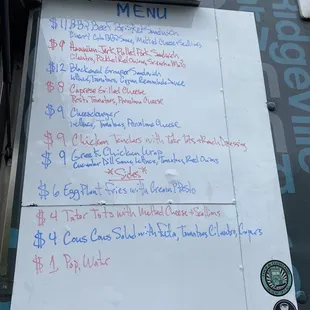 MENU
$11 BBQ Beef Brisket Sandwich
Cherry Cola BBQ Sauce, Melted Cheese + Scallions
$9 Hawaiian Jerk Pulled Pork Sandwich
Cilantro, Pickled Red Onions, Sriracha Mayo
$12 Blackened Grouper Sandwich
Lettuce, Tomatoes, Cajun Remoulade Sauce
$8 Caprese Grilled Cheese
Pesto, Tomatoes, Provolone Cheese
$9 Cheeseburger
Lettuce, Tomatoes, Provolone Cheese
$9 Chicken Tenders with Tater Tots + Ranch Dressing
$9 Greek Chicken Wrap
Cucumber Dill Sauce, Lettuce, Tomatoes, Red Onions
*Sides*
$6 Egg Plant Fries with Cream Pesto
$4 Tater Tots with Melted Cheese + Scallions
$4 Cous Cous Salad with Feta, Tomatoes, Cilantro, Capers
$1 Pop, Water